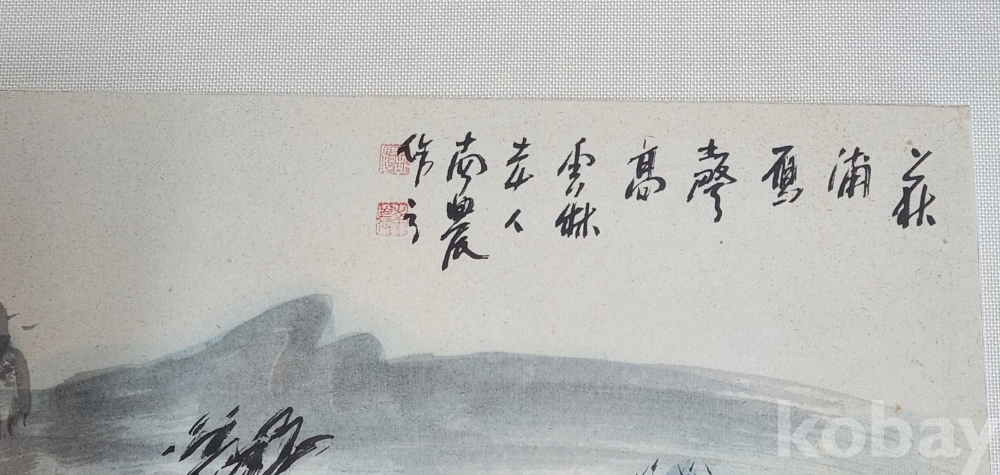 荻
浦
雁
聲
高
雲林
老人
南農
作之
kobay